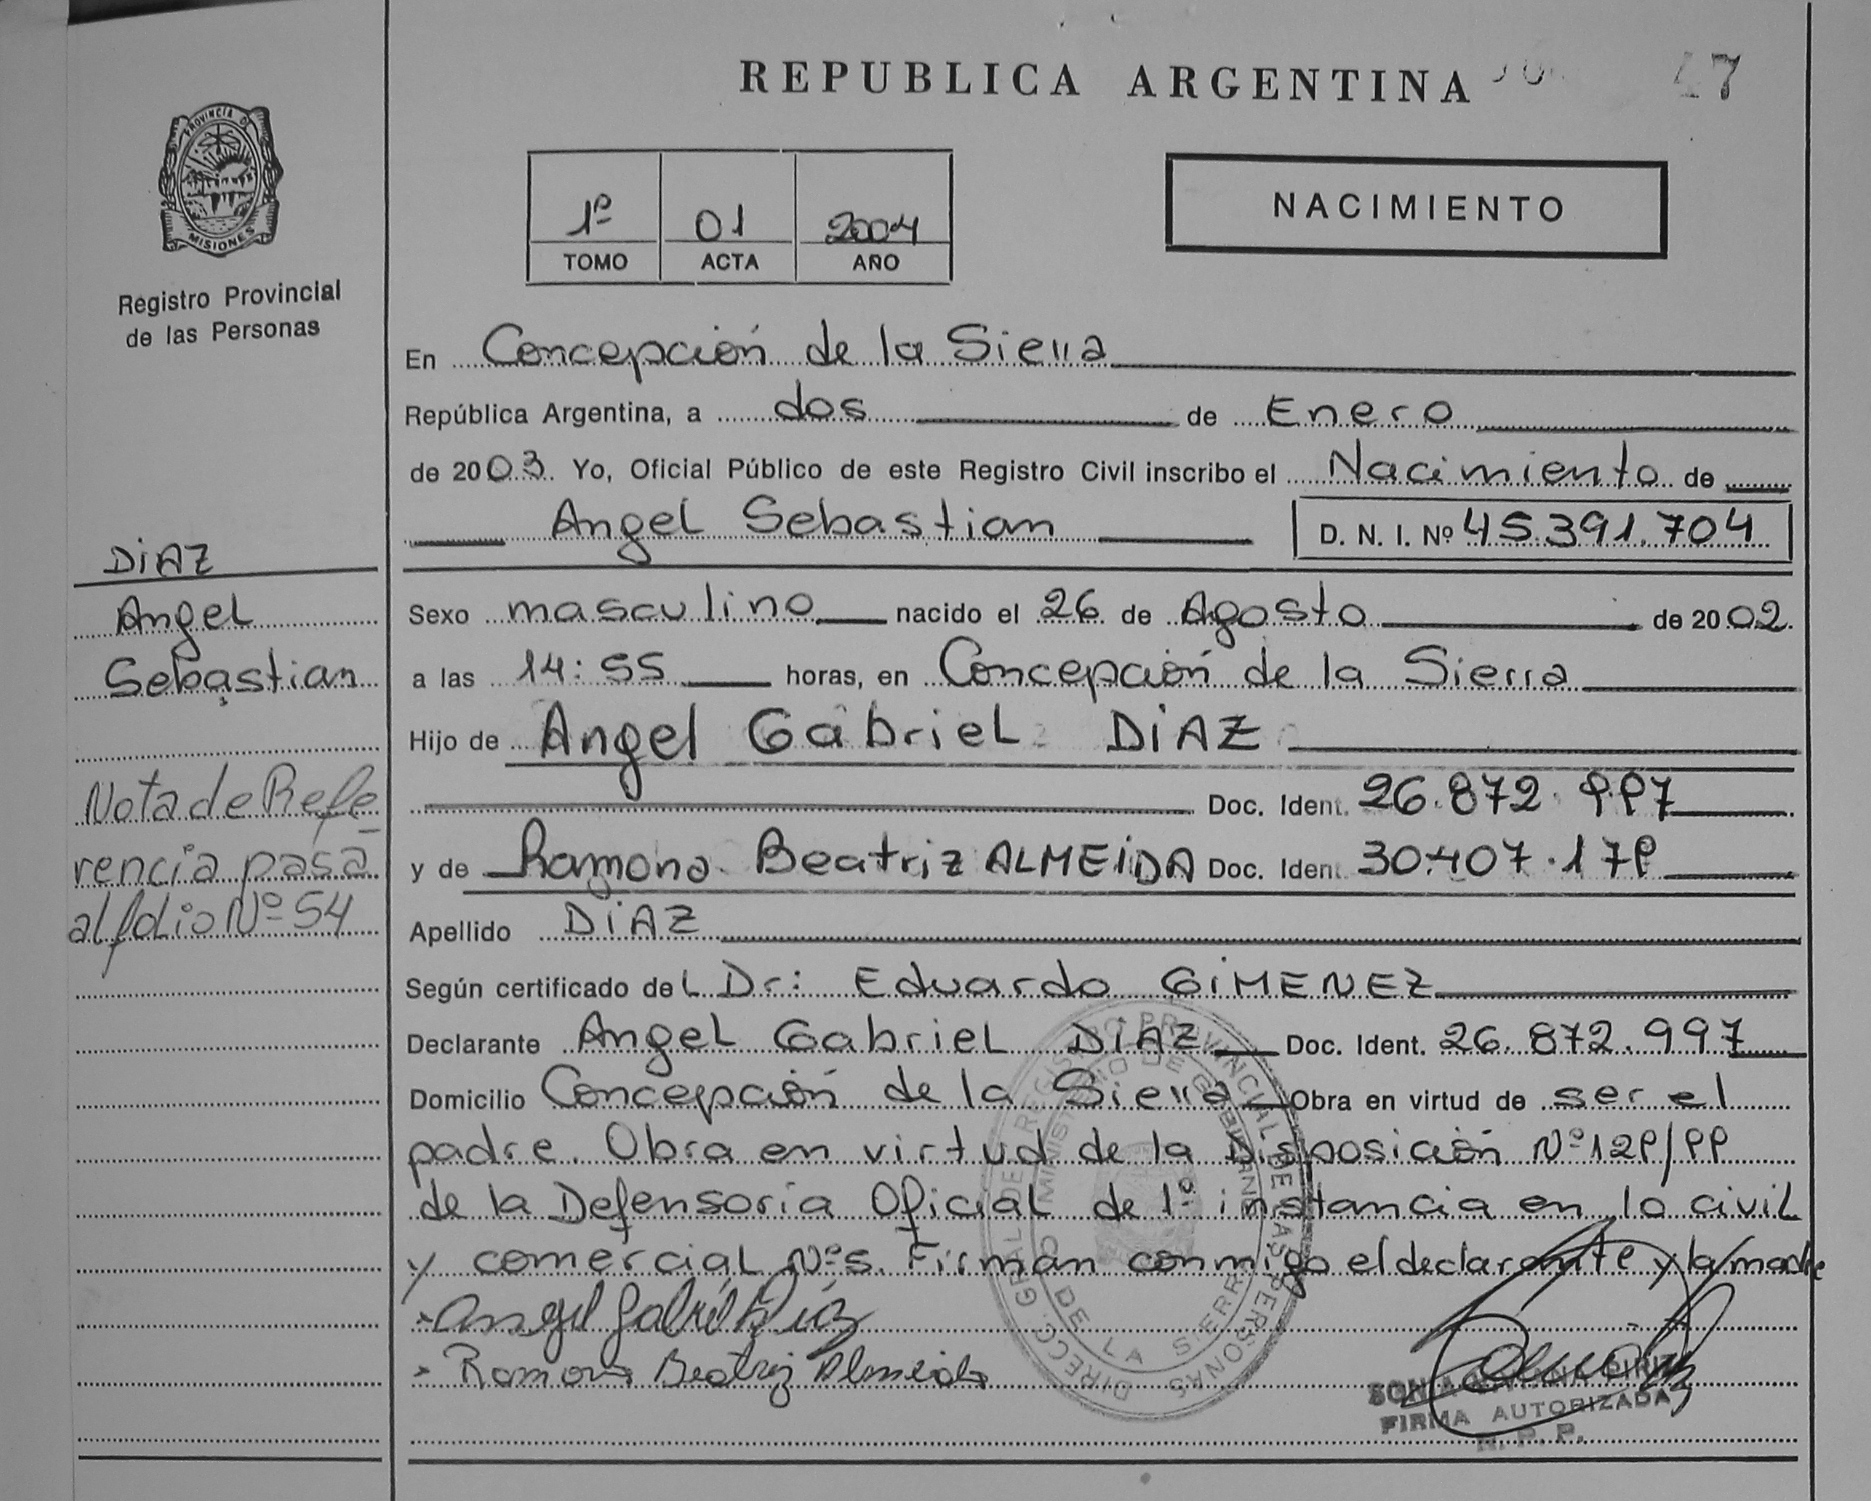 REPUBLICA ARGENTINA
47
PROVINCIA DE
MISIONES
Registro Provincial
de las Personas
1º 01 2004
TOMO ACTA AÑO
NACIMIENTO
En Concepción de la Sierra
República Argentina, a dos de Enero
de 2003. Yo, Oficial Público de este Registro Civil inscribo el Nacimiento de
Angel Sebastian D. N. I. Nº 45.391.704
DiAZ
Angel
Sebastian
Sexo masculino nacido el 26 de Agosto de 2002.
a las 14:55 horas, en Concepción de la Sierra
Hijo de Angel Gabriel DiAZ
Doc. Ident. 26.872.997
y de Ramona Beatriz ALMEiDA Doc. Iden. 30.407.179
Apellido DiAZ
Nota de Refe
rencia pasa
al folio Nº 54
Según certificado del Dr: Eduardo GiMENEZ
Declarante Angel Gabriel DiAZ Doc. Ident. 26.872.997
Domicilio Concepción de la Sierra Obra en virtud de ser el
padre. Obra en virtud de la Disposición Nº 129/99
de la Defensoria Oficial de 1º instancia en lo civil
y comercial Nº 5. Firman conmigo el declarante y la madre
Angel Gabriel Diaz
Ramona Beatriz Almeida
DIRECC. GRAL DE REGISTRO PROVINCIAL DE LAS PERSONAS
MINISTERIO DE GOBIERNO
DE LA SIERRA
SONIA
FIRMA AUTORIZADA
R. P. P.